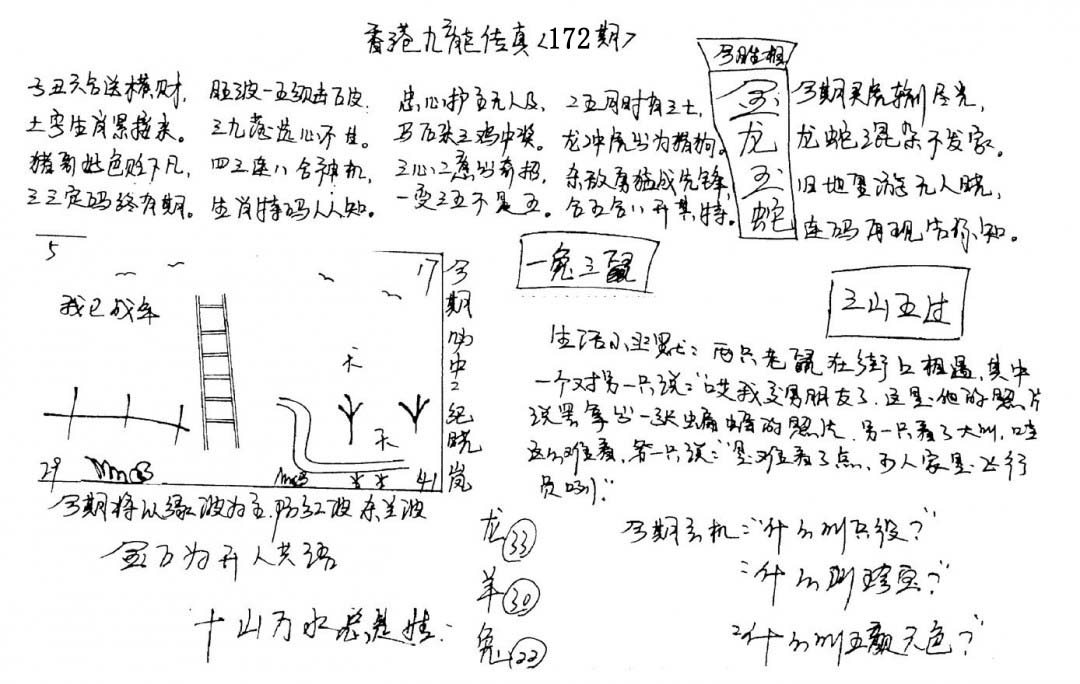 香港九龙传真<172期>
今肖相
今丑六合送横财，
土字生肖黑接来。
猪哥好色贬下凡，
三三定码终有期。
旺波一五颈击石皮。
三九范选心不佳。
四三连八合神机，
生肖特码人人知。
忠心护主无人及，
马后来三鸡中奖。
三心二意出奇招，
一变三五不是五。
二五同时有三土，
龙冲虎出为猪狗。
杀敌勇猛战先锋，
合五合八开其特。
金
龙
玉
蛇
今期买虎输川尽光，
龙蛇混杂不发家。
旧地重游无人晓，
连码再现告你知。
5
17
我已成年
天
天
29
41
今期叻中纪晓岚
一兔三鼠
三山五过
生活小幽默：两只老鼠在街上相遇，其中
一个对另一只说："哎我交男朋友了，这是他的照片
说罢拿出一张蝙蝠的照片，另一只看了大叫，哇
这么难看，第一只说："是难看了点，可人家是飞行
员咧！"
今期将以绿波为主，防红波杂兰波
金石为开人共语
十山万水总是娃：
龙33
羊30
兔22
今期玄机："什么叫兵役？"
"什么叫跨宽？"
"什么叫五颜六色？"